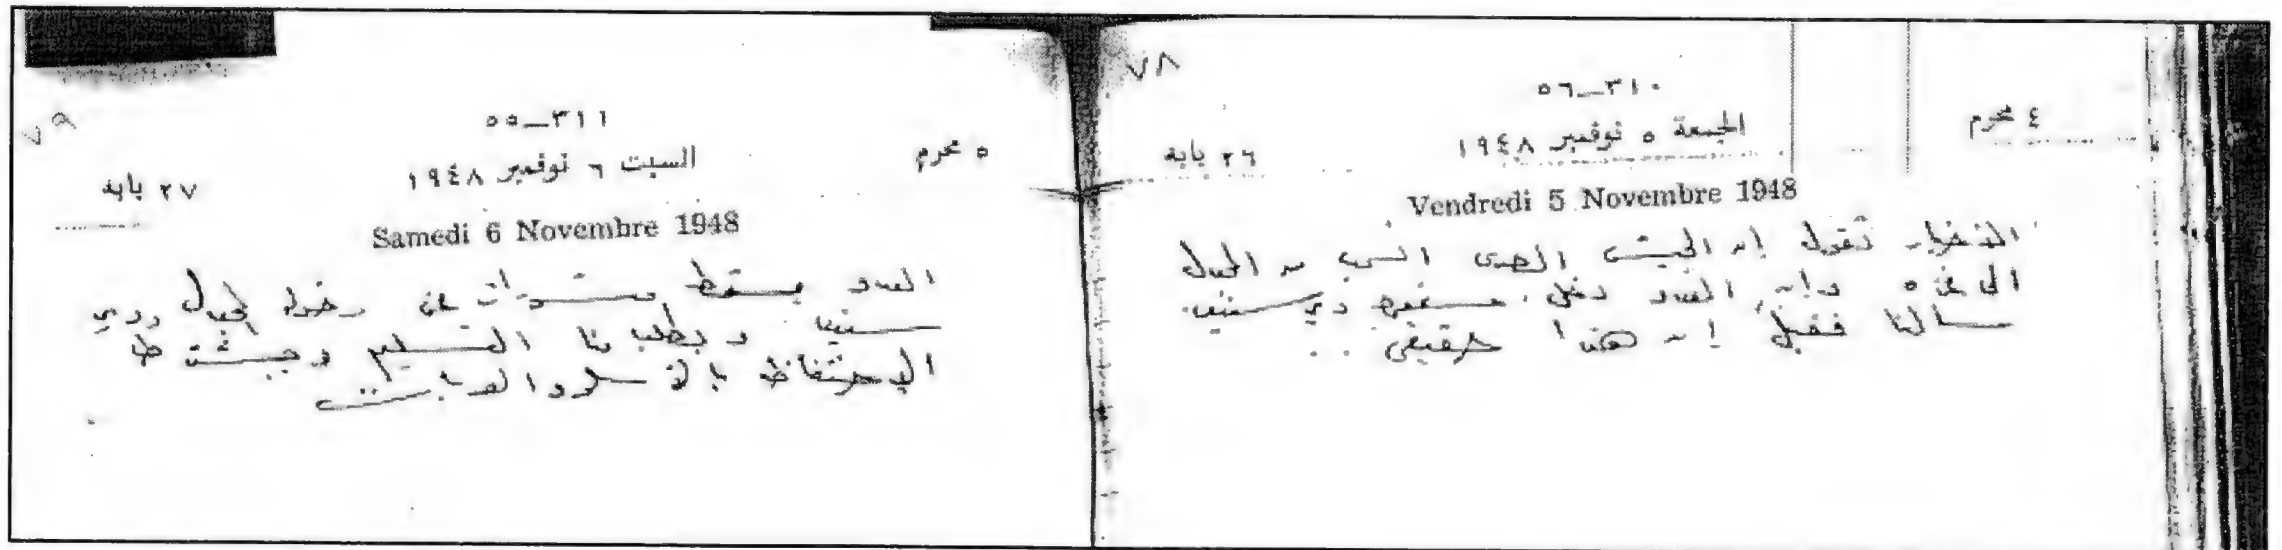 ٧٨
٣١٠_٥٦
٤ محرم
الجمعة ٥ نوفمبر ١٩٤٨
٢٦ بابه
Vendredi 5 Novembre 1948
تقول إن الجيش المصرى انسحب من المجدل
الى غزة وإن العدو دخل دير سنيد
سألنا فقيل إن هذا حقيقى ..
٧٩
٣١١_٥٥
٥ محرم
السبت ٦ نوفمبر ١٩٤٨
٢٧ بابه
Samedi 6 Novembre 1948
العدو يسقط منشورات عن دخوله المجدل ودير
سنيد ويطلب منا التسليم ويشترط
الاحتفاظ بالأسلحة والمعدات